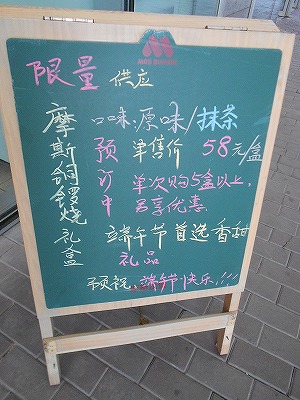 MOS BURGER
限量 供应
摩斯铜锣烧礼盒
口味:原味/抹茶
预订中
单售价 58元/盒
单次购5盒以上,
另享优惠
端午节首选香甜
礼品
预祝 端午节快乐!!!